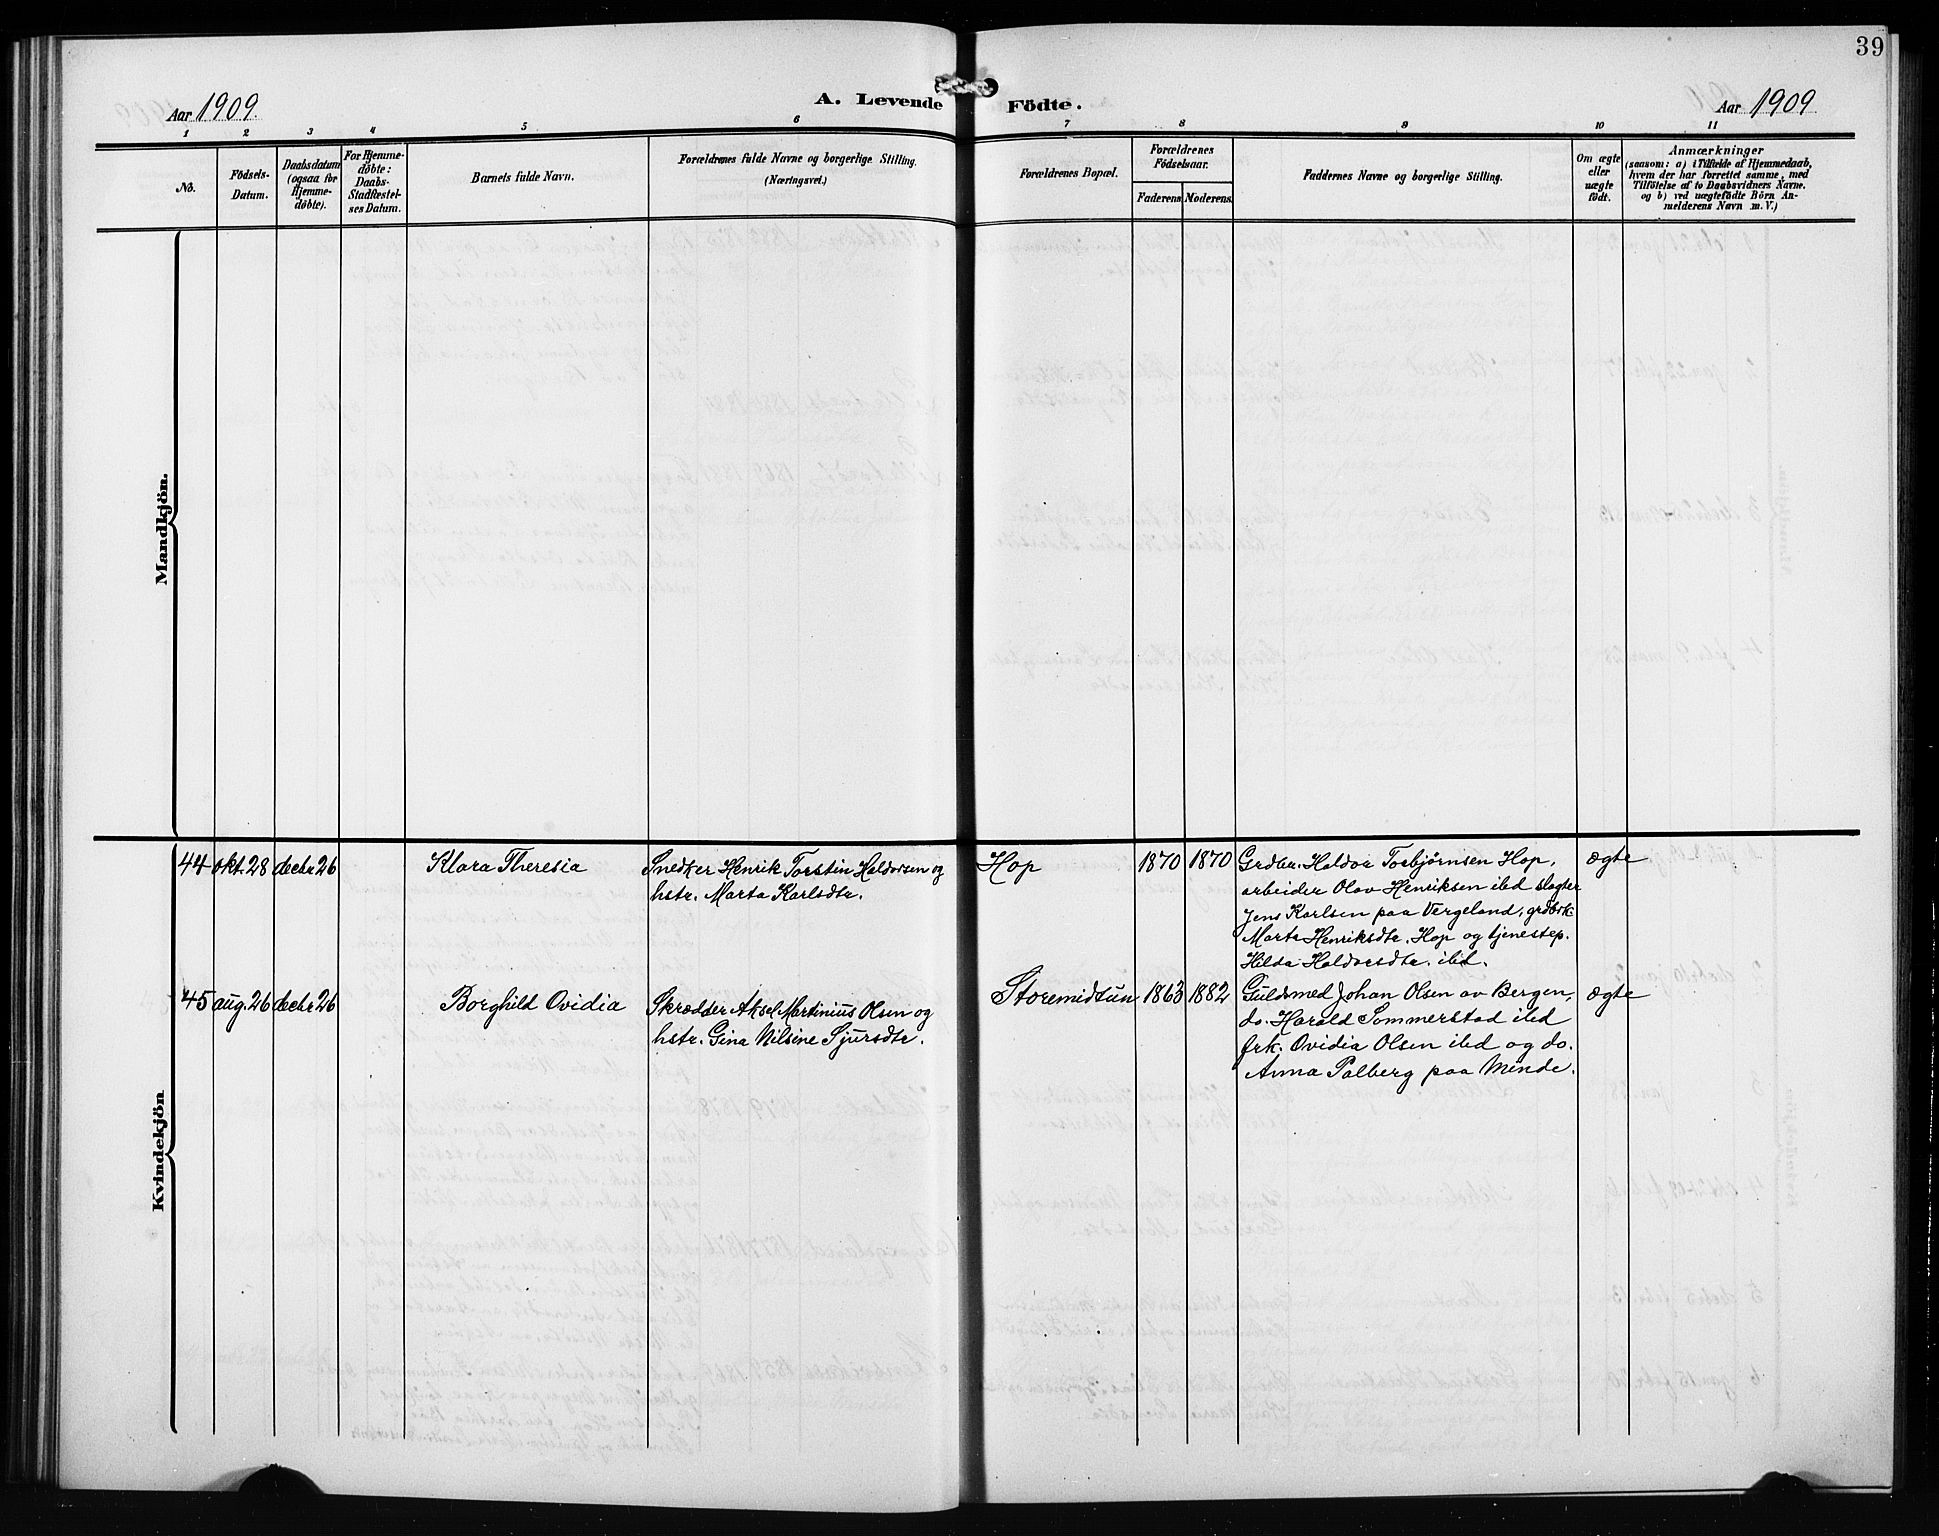 39
Aar 1909.
A. Levende Födte.
Aar 1909
1 2 3 4 5 6 7 8 9 10 11
No.
Födsels-Datum.
Daabsdatum (ogsaa for Hjemme-döbte).
For Hjemme-döbte: Daabs-Stadfæstel-ses Datum.
Barnets fulde Navn.
Forældrenes fulde Navne og borgerlige Stilling.
(Næringsvei.)
Forældrenes Bopæl.
Forældrenes Födselsaar.
Faderens Moderens
Faddernes Navne og borgerlige Stilling.
Om ægte eller uægte födt.
Anmærkninger
(saasom: a) i Tilfælde af Hjemmedaab,
hvem der har forrettet samme, med
Tilföielse af to Daabsvidners Navne.
og b) ved uægtefödte Börn An-
melderens Navn m. V.)
Mandkjön.
Kvindekjön
44 okt. 28 decbr 26 Klara Theresia
Snedker Henrik Torstin Haldorsen og
hstr. Marta Karlsdtr.
Hop 1870 1870
Grdbr. Haldor Torbjørnsen Hop,
arbeider Olav Henriksen ibid slagter
Jens Karlsen paa Vergeland, grdbrk.
Marta Henriksdtr. Hop og tjenestep.
Hilda Haldorsdtr. ibid.
ægte
45 aug. 26 decbr 26 Borghild Ovidia
Skrædder Aksel Martinius Olsen og
hstr. Gina Nilsine Sjursdtr.
Storemidtun 1863 1882
Guldsmed Johan Olsen av Bergen,
do. Harald Sommerstad ibid
frk. Ovidia Olsen ibid og do.
Anna Palberg paa Minde.
ægte